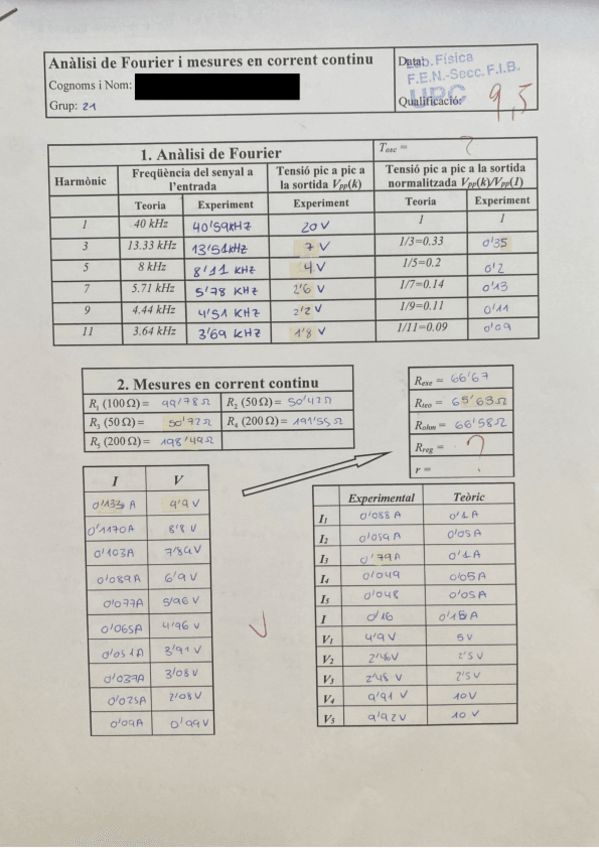 Anàlisi de Fourier i mesures en corrent continu
Data:
Lab. Física
F.E.N.-Secc. F.I.B.
UPC
Cognoms i Nom:
Grup: 21
Qualificació: 9,5
1. Anàlisi de Fourier
Tosc = ?
Harmònic
Freqüència del senyal a l'entrada
Tensió pic a pic a la sortida Vpp(k)
Tensió pic a pic a la sortida normalitzada Vpp(k)/Vpp(1)
Teoria Experiment Experiment Teoria Experiment
1 40 kHz 40'59kHz 20V 1 1
3 13.33 kHz 13'51kHz 7 V 1/3=0.33 0'35
5 8 kHz 8'11 KHZ 4 V 1/5=0.2 0'2
7 5.71 kHz 5'78 KHZ 2'6 V 1/7=0.14 0'13
9 4.44 kHz 4'51 KHZ 2'2 V 1/9=0.11 0'11
11 3.64 kHz 3'69 KHZ 1'8 V 1/11=0.09 0'09
2. Mesures en corrent continu
R1 (100Ω)= 99'78Ω R2 (50Ω)= 50'42Ω
R3 (50Ω)= 50'72Ω R4 (200Ω)= 191'55Ω
R5 (200Ω)= 198'49Ω
Rexe = 66'67
Rteo = 65'63Ω
Rohm = 66'58Ω
Rreg = ?
r = ?
I V
0'133 A 9'9 V
0'1170A 8'8 V
0'103A 7'84V
0'089A 6'9 V
0'077A 5'96 V
0'065A 4'96 V
0'051A 3'91 V
0'037A 3'03 V
0'025A 2'08V
0'09A 0'99V
Experimental Teòric
I1 0'088A 0'1A
I2 0'05A
I3 0'79A 0'1A
I4 0'049 0'05A
I5 0'048 0'05A
I 0'16 0'15A
V1 4'9V 5V
V2 2'46V 2'5V
V3 2'48 V 2'5V
V4 9'91 V 10V
V5 9'92V 10 V